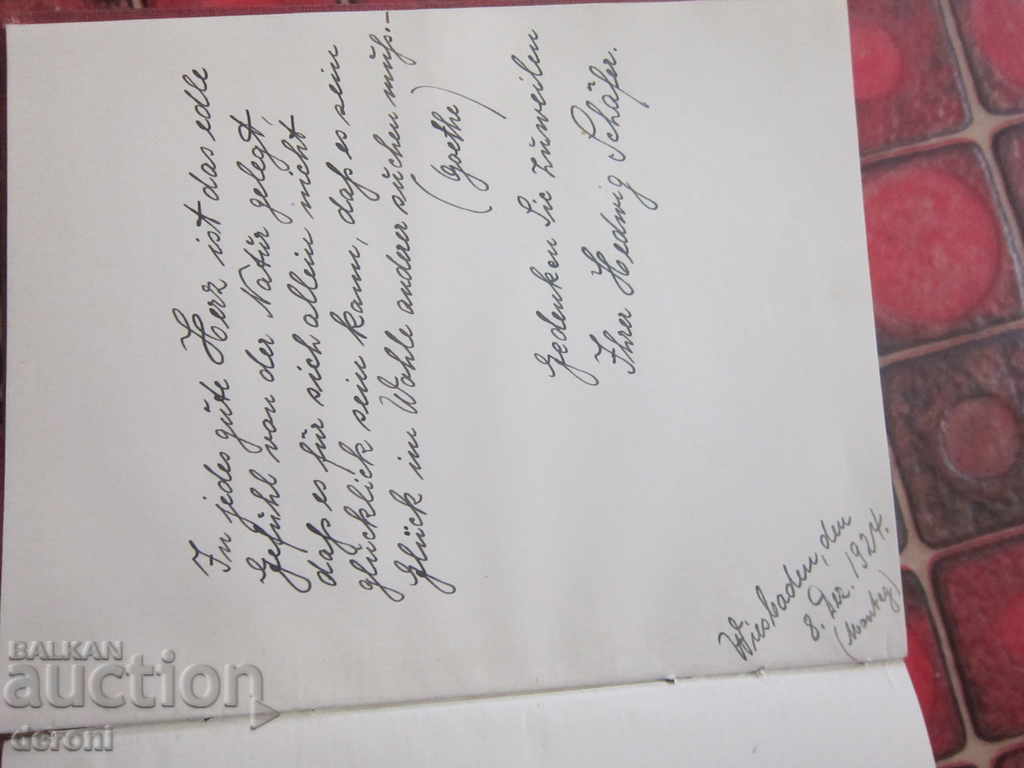 In jedes gute Herz ist das edle
Gefühl von der Natur gelegt,
daß es für sich allein nicht
glücklich sein kann, daß es sein
Glück im Wohle anderer suchen muß.-
(Goethe)
Gedenken Sie zuweilen
Ihrer Hedwig Schäfer.
Wiesbaden, den
8. Dez. 1924.
(Montag)
BALKAN
auction
deroni